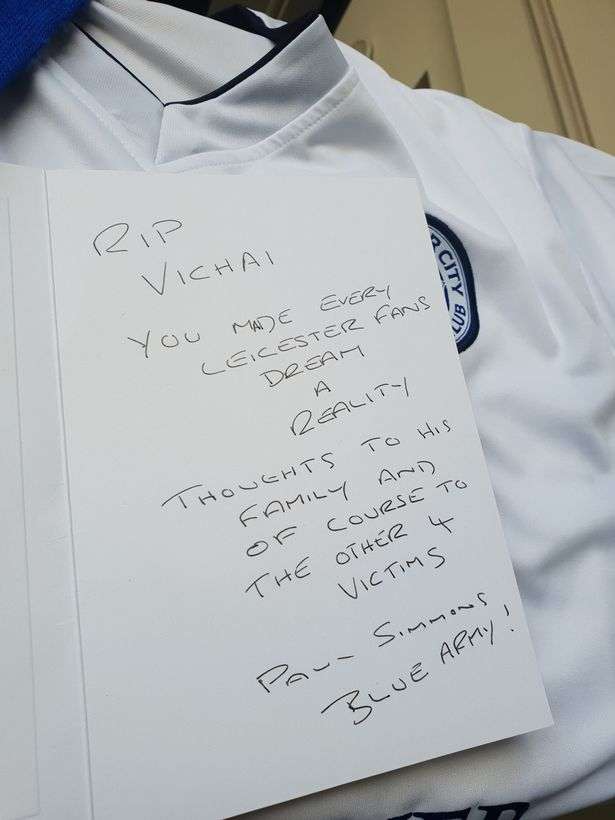 RIP
VICHAI
YOU MADE EVERY
LEICESTER FANS
DREAM
A
REALITY
THOUGHTS TO HIS
FAMILY AND
OF COURSE TO
THE OTHER 4
VICTIMS
PAUL SIMMONS
BLUE ARMY!
CITY
CLUB